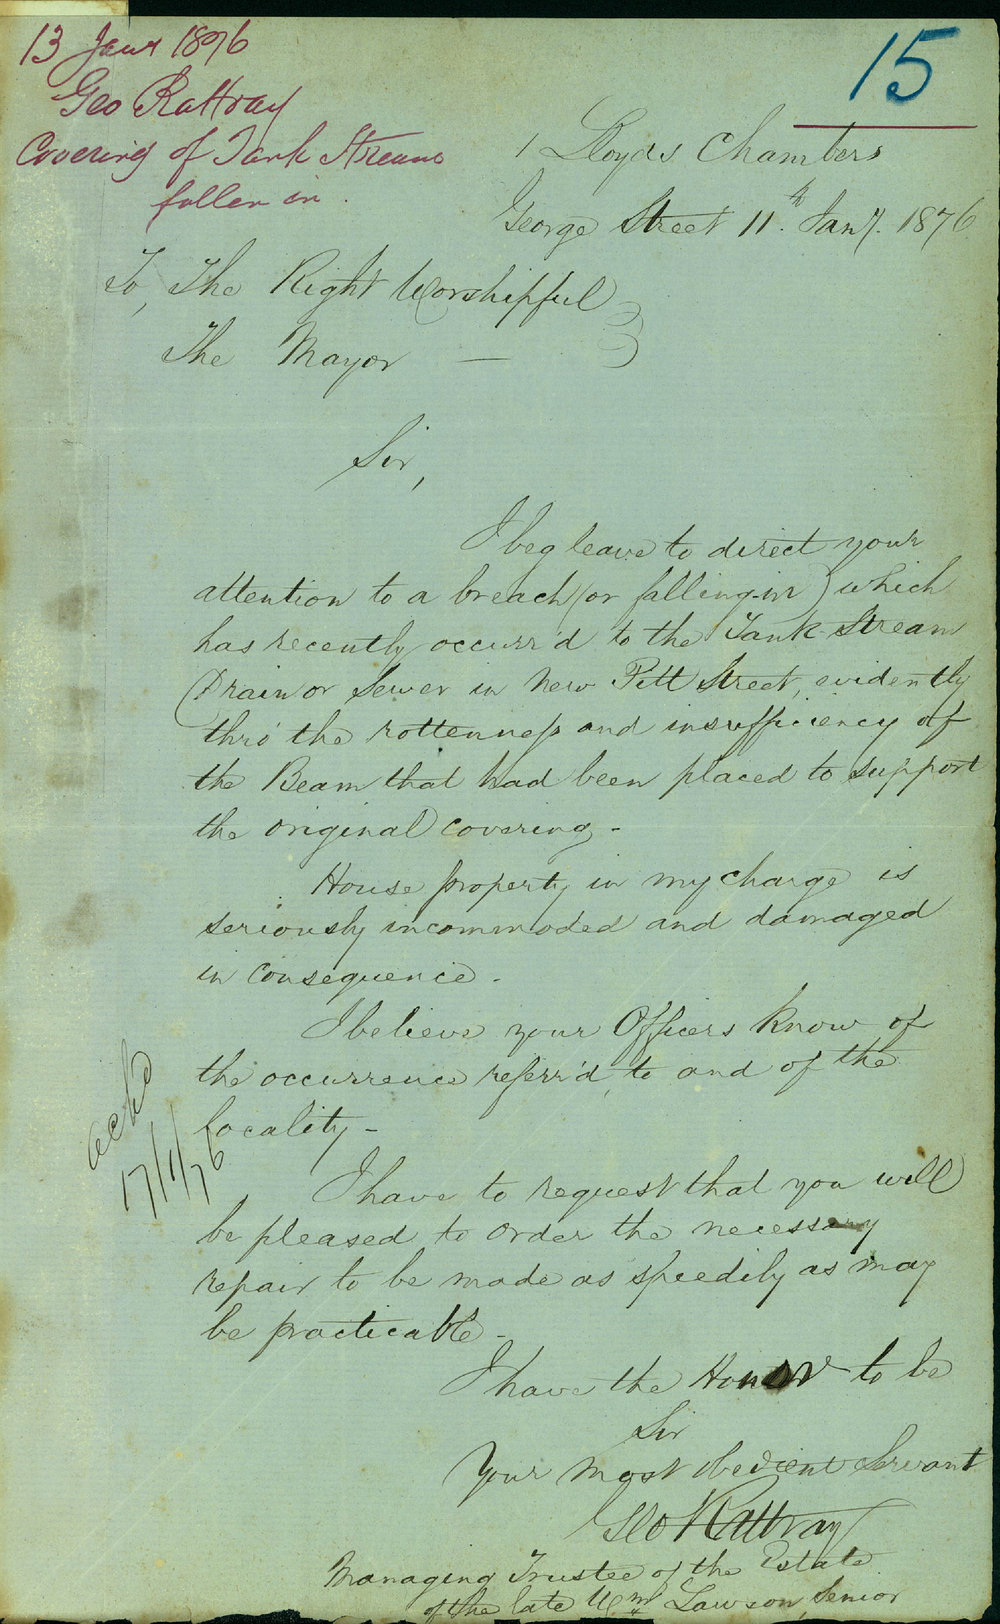 13 Jany 1876
Geo Rattray
Covering of Tank Stream
fallen in.
15
1 Lloyds Chambers
George Street 11th Jany. 1876
To, The Right Worshipful
The Mayor —
Sir,
I beg leave to direct your
attention to a breach (or falling-in) which
has recently occurr'd to the Tank Stream
Drain or Sewer in New Pitt Street, evidently
thro' the rottenness and insufficiency of
the Beam that had been placed to support
the original covering -
House property in my charge is
seriously incommoded and damaged
in consequence -
I believe your Officers know of
the occurrence referr'd to and of the
locality -
Ackd
17/1/76
I have to request that you will
be pleased to order the necessary
repair to be made as speedily as may
be practicable -
I have the Honor to be
Sir
Your most obedient Servant
Geo Rattray
Managing Trustee of the Estate
of the late Wm Lawson, Senior